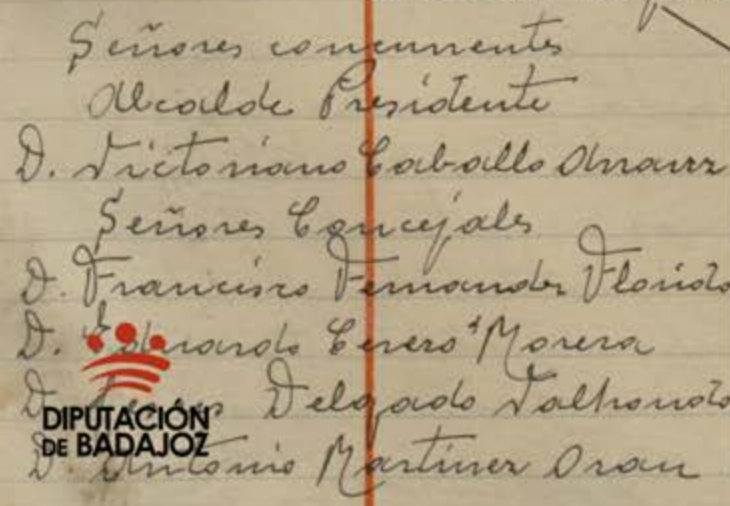 Señores concurrentes
Alcalde Presidente
D. Victoriano Caballo
Señores Concejales
D. Francisco Fernandez Florido
D. Eduardo Cerero Morera
D. Delgado Valhondo
D. Antonio Martinez Oran
DIPUTACIÓN
DE BADAJOZ